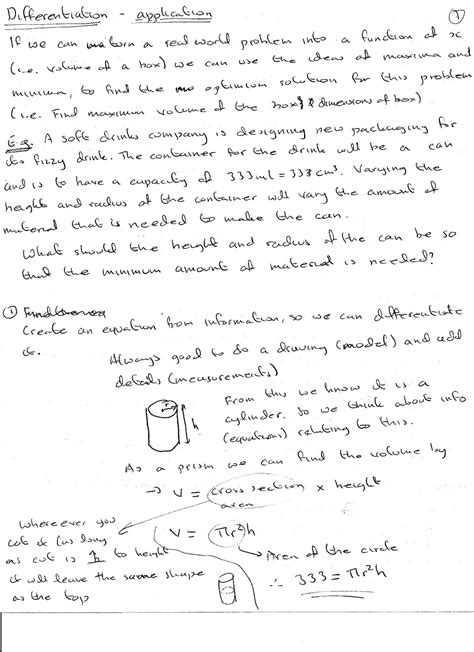 Differentiation - application
①
If we can turn a real world problem into a function of x
(i.e. volume of a box) we can use the idea of maxima and
minima, to find the optimium solution for this problem
(i.e. Find maximum volume of the box & dimensions of box)
E.g. A soft drinks company is designing new packaging for
its fizzy drink. The container for the drink will be a can
and is to have a capacity of 333ml = 333cm³. Varying the
height and radius of the container will vary the amount of
material that is needed to make the can.
What should the height and radius of the can be so
that the minimum amount of material is needed?
①
Create an equation from information, so we can differentiate
it.
Always good to do a drawing (model) and add
details (measurements)
r
h
From this we know it is a
cylinder. So we think about info
(equations) relating to this.
As a prism we can find the volume by
→ V = cross section × height
area
Whereever you
cut it (as long
as cut is to height
it will leave the same shape
as the top
V = πr²h
→ Area of the circle
∴ 333 = πr²h